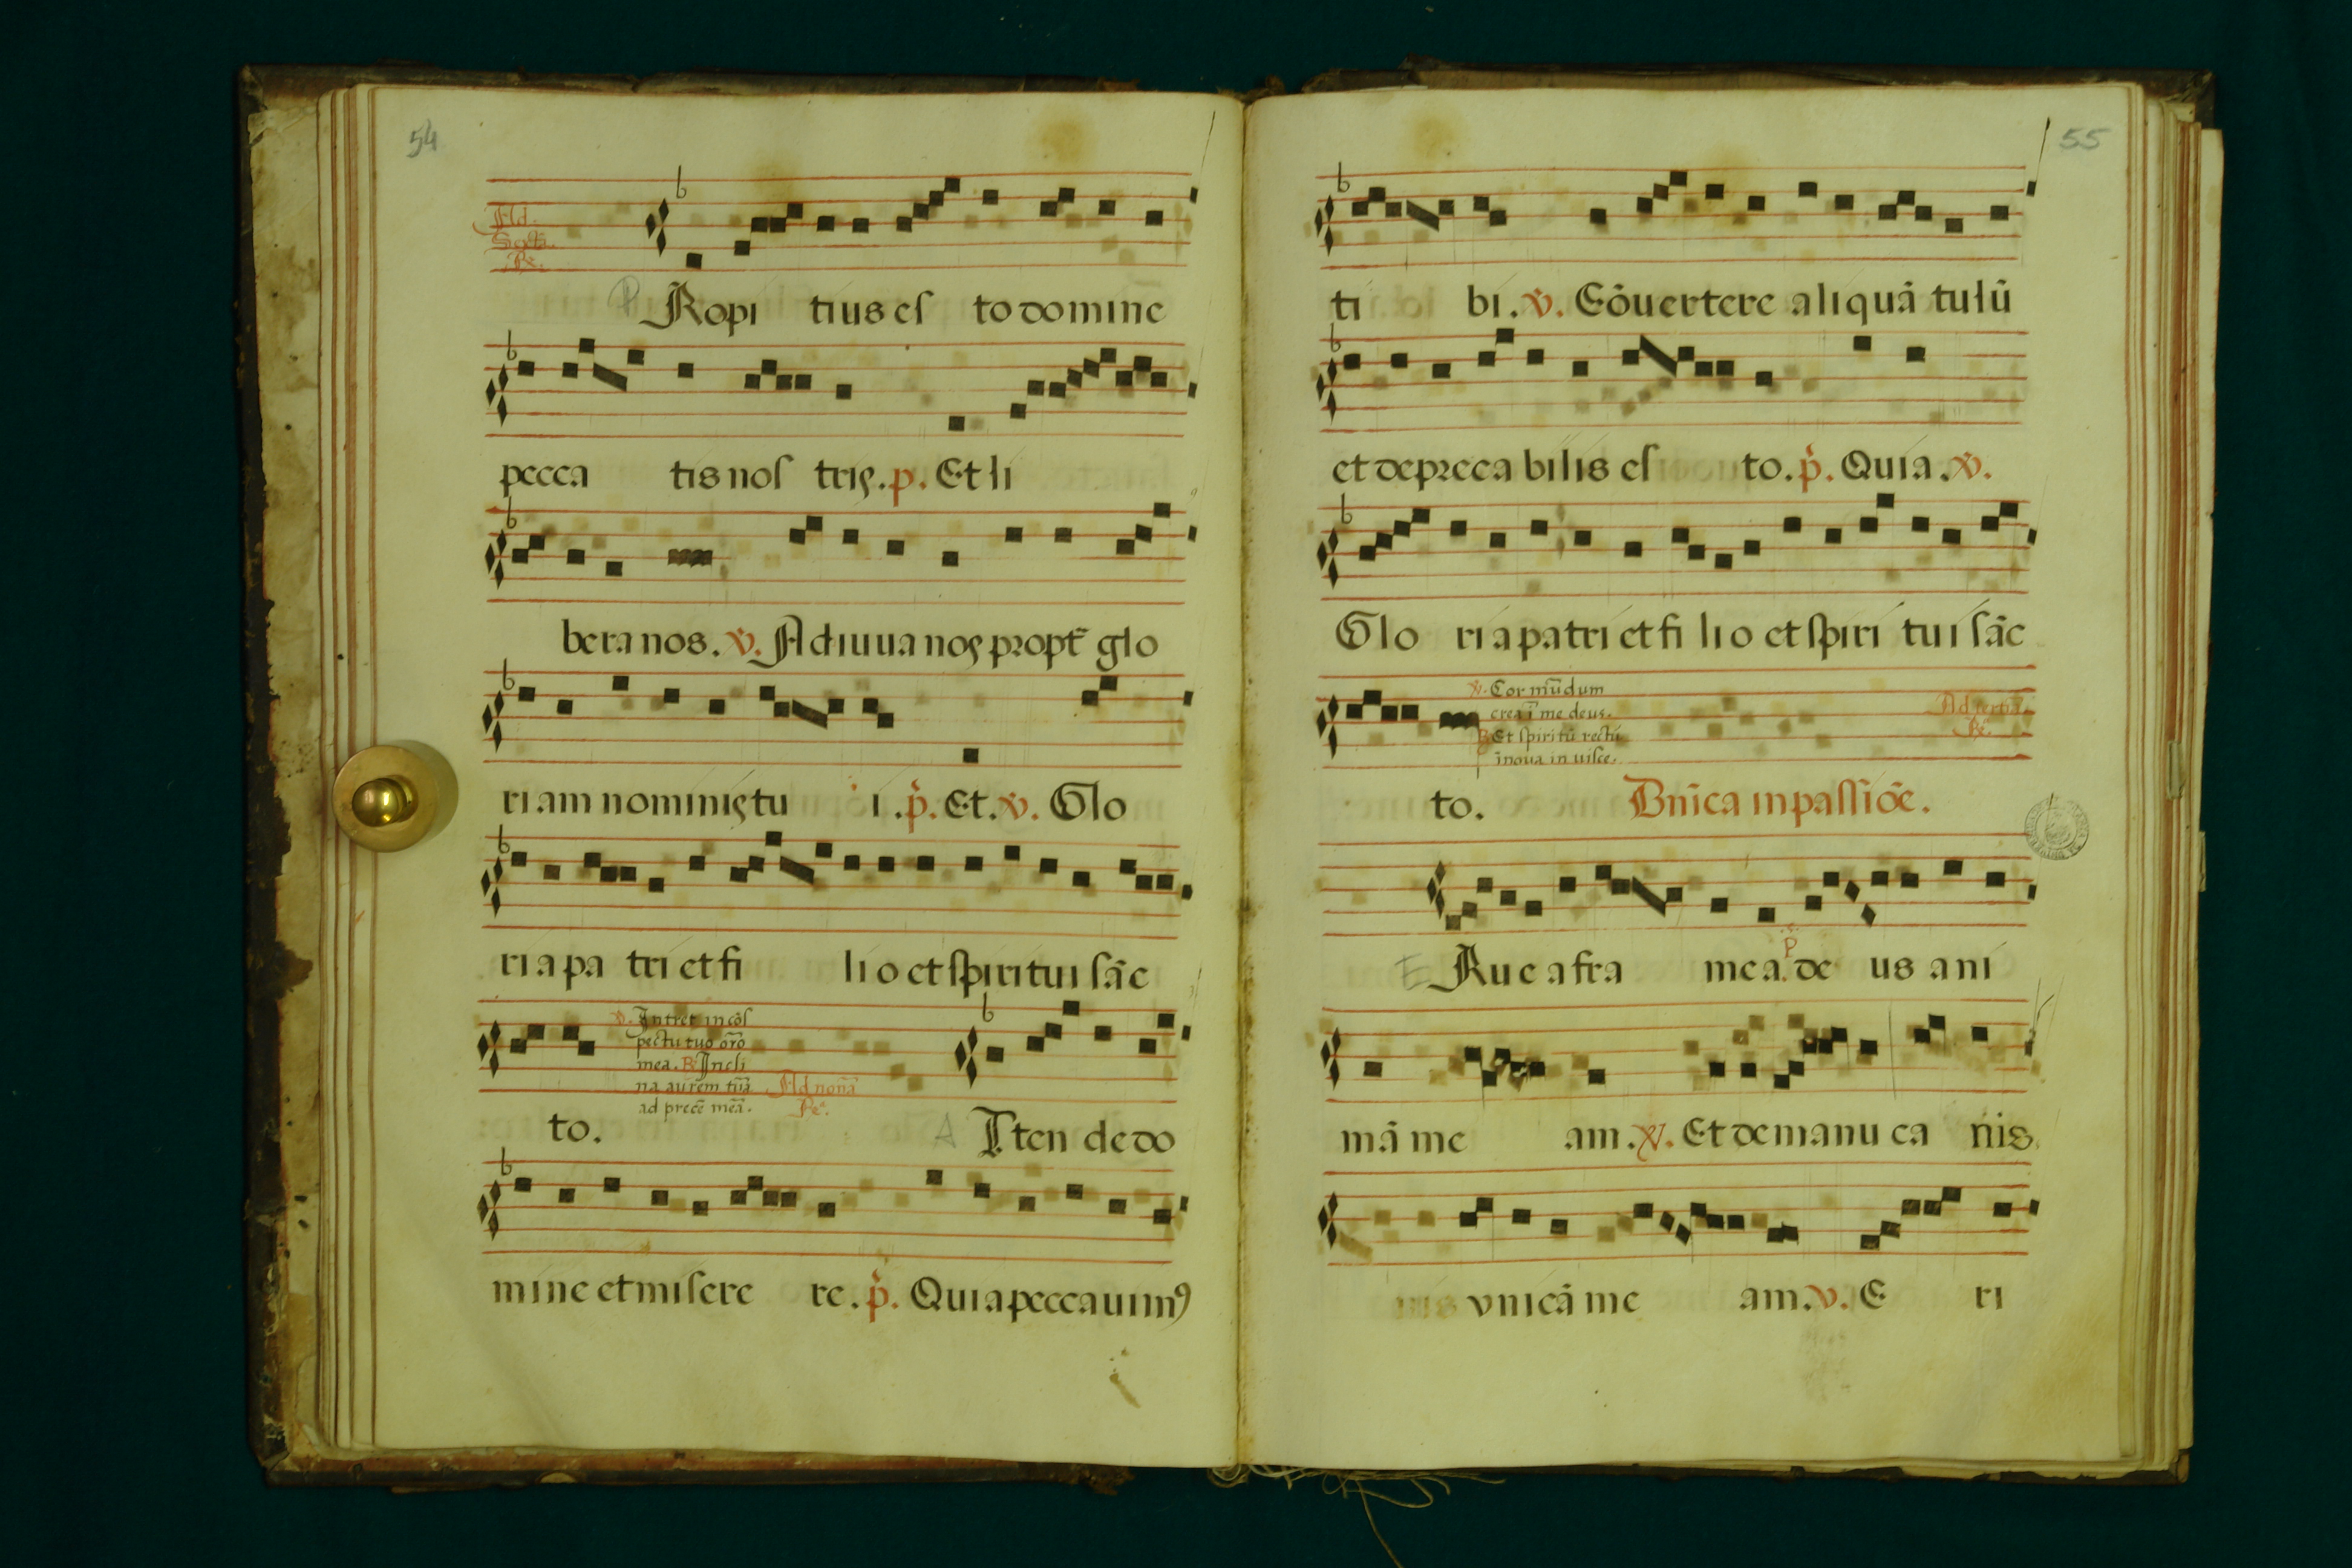 54
Ad.
Ropi tius es to domine
pecca tis nos tris. p. Et li
bera nos. v. Adiuua nos propt̃ glo
riam nominis tu i. p. Et. v. Glo
ria pa tri et fi lio et spiritui sãc
v. Intret in cõs
pectu tuo or̃o
mea. R Incli
na aurem tuã
ad precẽ meã.
Ad nonã
to. A Tten de do
mine et misere re. p. Quia peccauimꝰ
55
ti bi. v. Cõuertere aliquã tulũ
et depreca bilis es to. p. Quia. v.
Glo ria patri et fi lio et spiri tui sãc
v. Cor mũdum
crea ĩ me deus.
R Et spiritũ rectũ
ĩnoua in uisce.
Ad tertiã
to. Dñica in passiõe.
E Rue a fra mea. de us ani
p
mã me am. v. Et de manu ca nis
vnicã me am. v. E ri